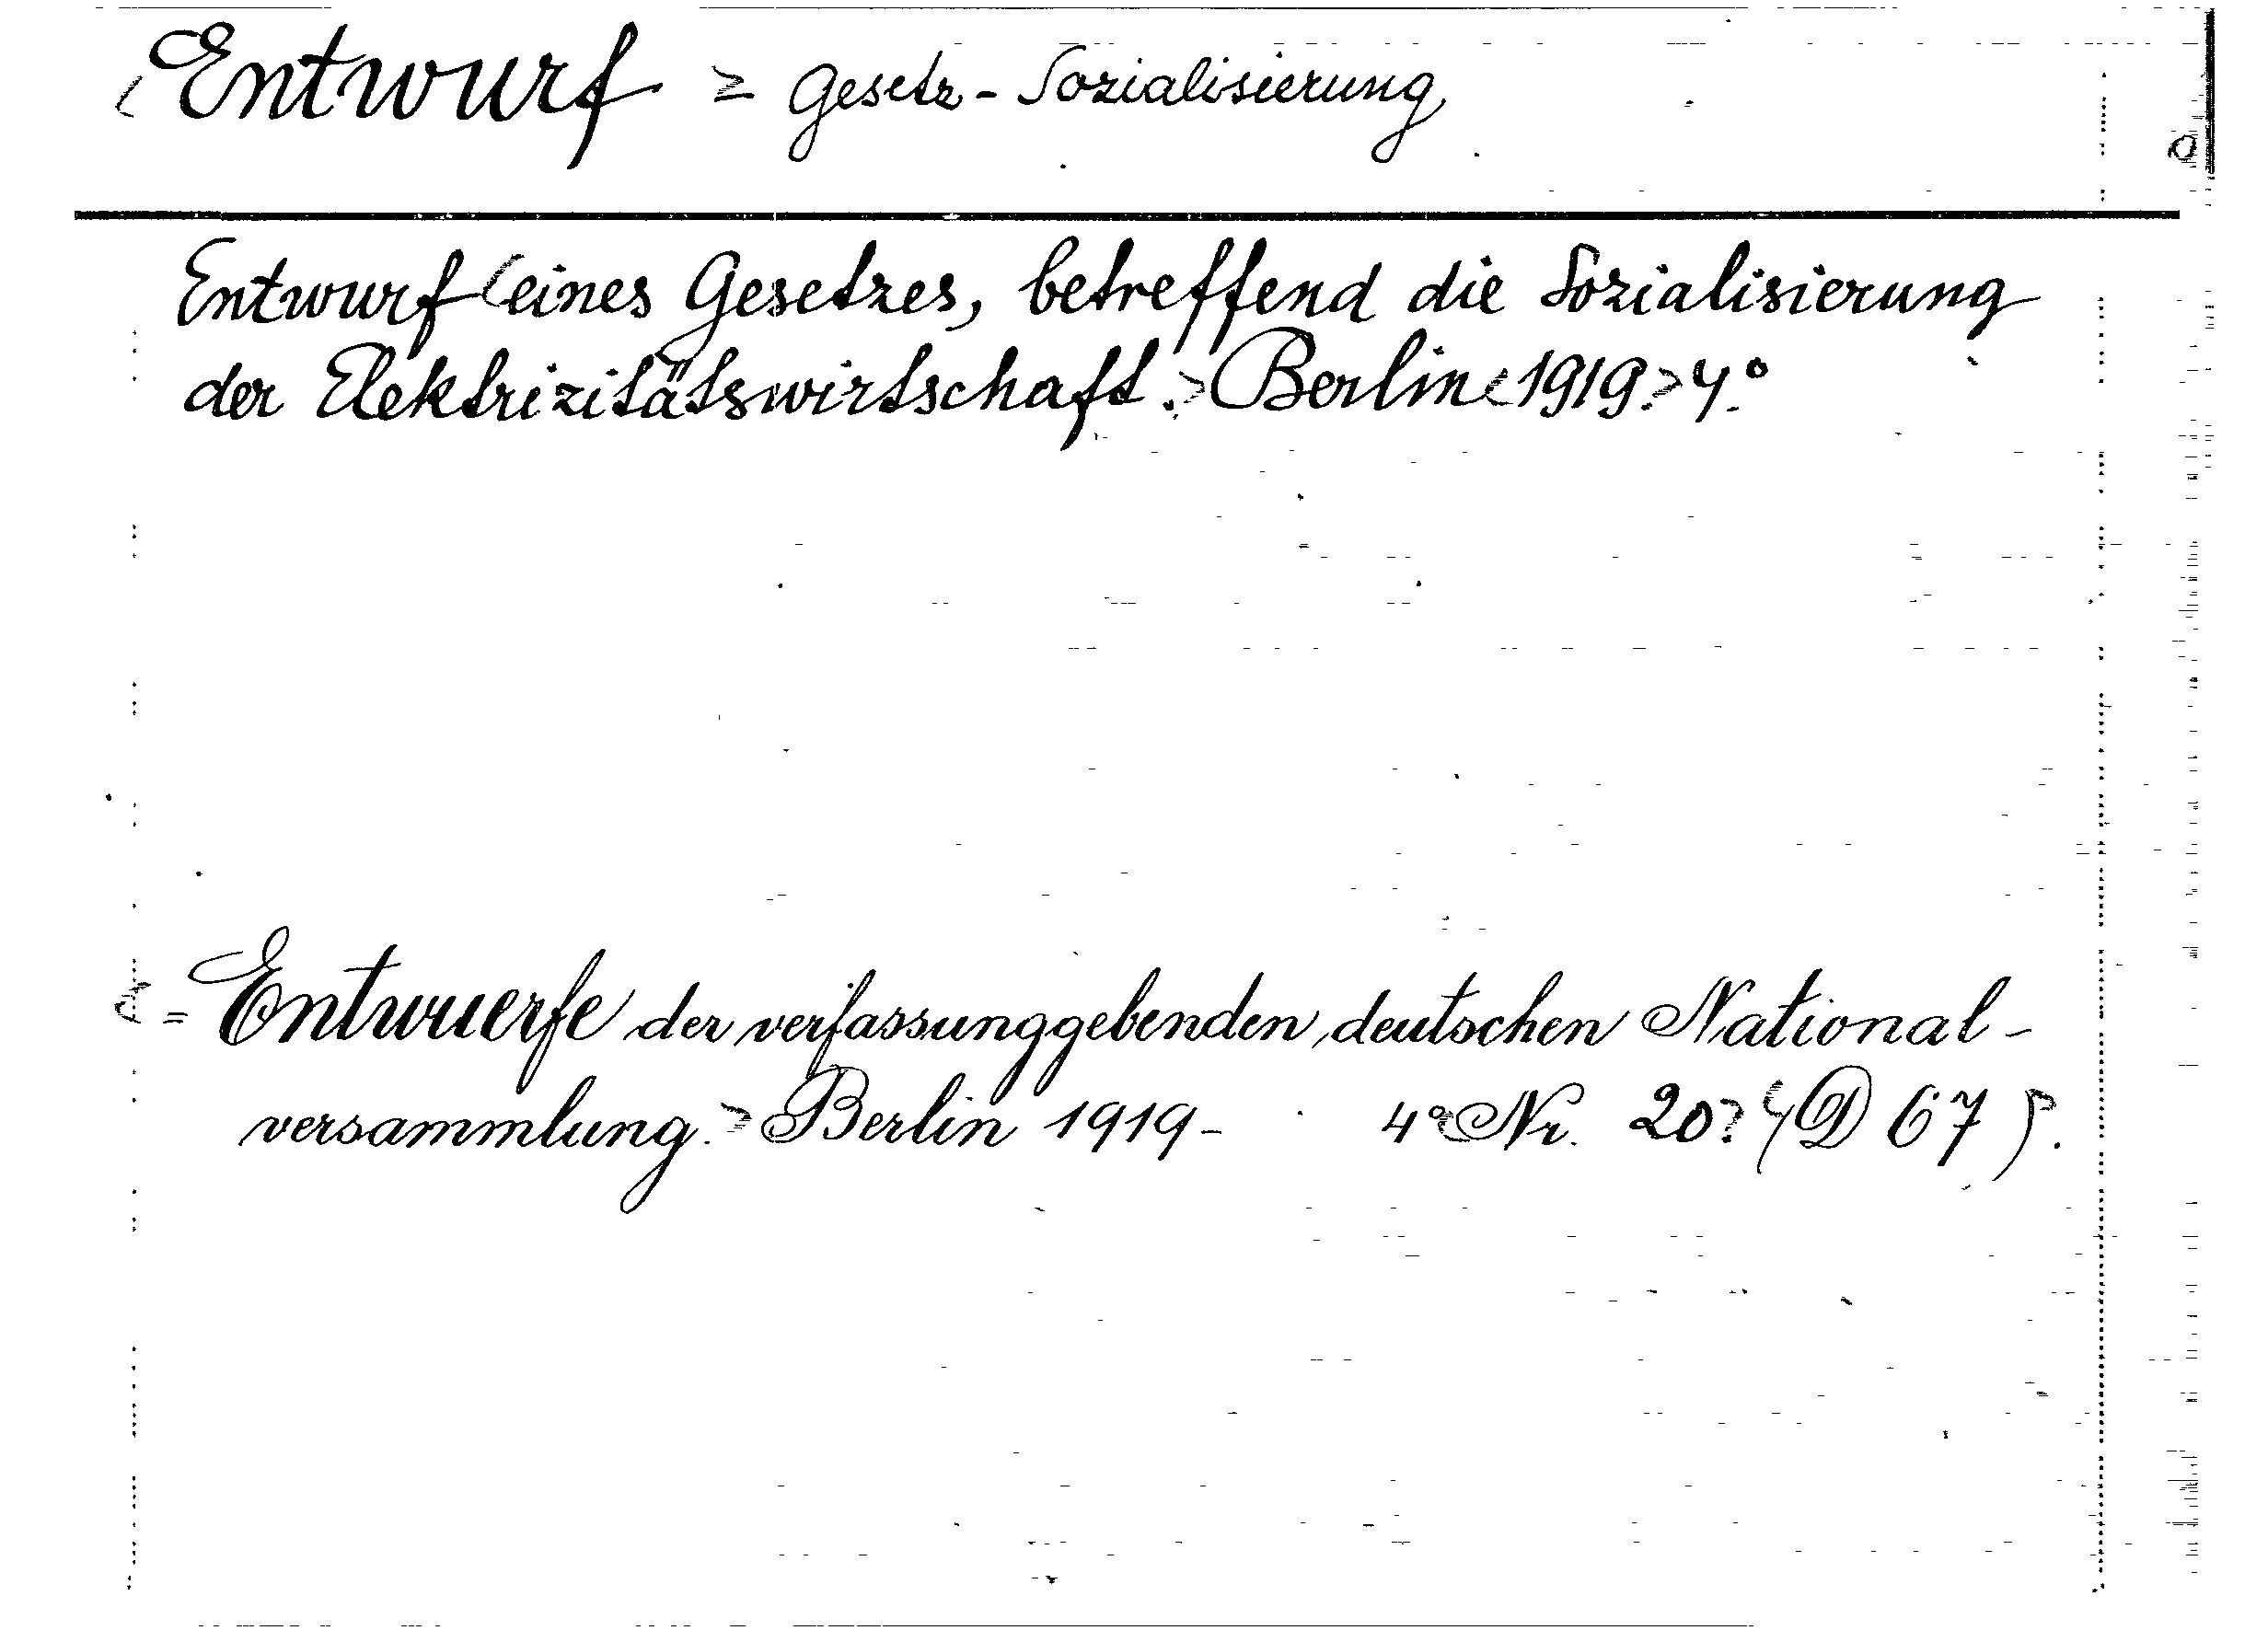 Entwurf = Gesetz - Sozialisierung
Entwurf eines Gesetzes, betreffend die Sozialisierung
der Elektrizitätswirtschaft. Berlin 1919. 4°.
= Entwuerfe der verfassunggebenden deutschen National-
versammlung. Berlin 1919- 4° Nr. 20 (D 67).